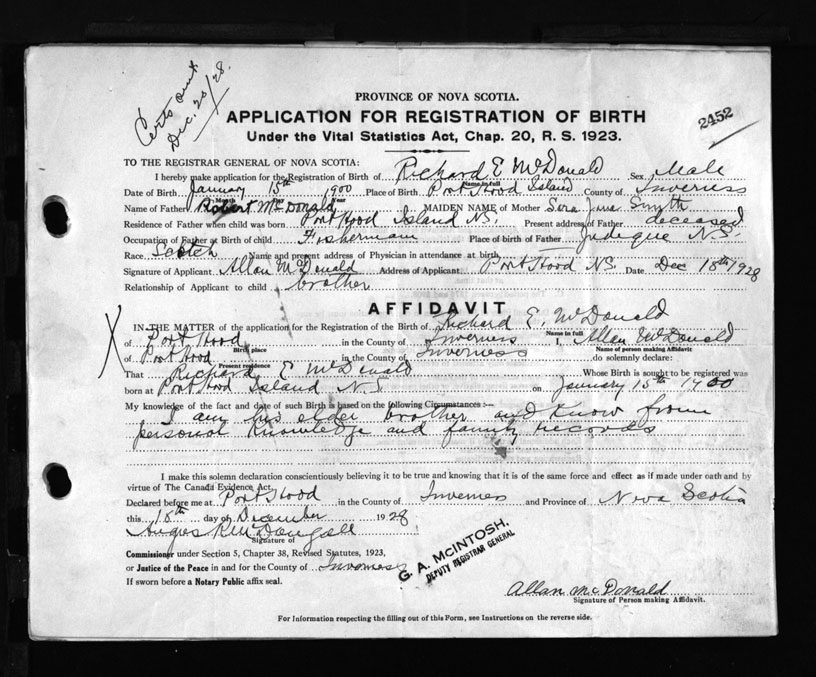 Certs sent
Dec. 20/28.
2452
PROVINCE OF NOVA SCOTIA.
APPLICATION FOR REGISTRATION OF BIRTH
Under the Vital Statistics Act, Chap. 20, R. S. 1923.
TO THE REGISTRAR GENERAL OF NOVA SCOTIA:
I hereby make application for the Registration of Birth of Richard E McDonald Sex Male
Name in full
Date of Birth January 15th 1900 Place of Birth Port Hood Island County of Inverness
Month Day Year
Name of Father Robert McDonald MAIDEN NAME of Mother Sera Jane Smyth
Residence of Father when child was born Port Hood Island NS. Present address of Father deceased
Occupation of Father at Birth of child Fisherman Place of birth of Father Judique N.S.
Race Scotch Name and present address of Physician in attendance at birth
Signature of Applicant Allan McDonald Address of Applicant Port Hood NS. Date Dec 15th 1928
Relationship of Applicant to child brother
AFFIDAVIT
IN THE MATTER of the application for the Registration of the Birth of Richard E. McDonald
Name in full
X of Port Hood in the County of Inverness I, Allan McDonald
Birth place Name of person making Affidavit
of Port Hood in the County of Inverness do solemnly declare:
Present residence
That Richard E McDonald Whose Birth is sought to be registered was
born at Port Hood Island N.S on January 15th 1900
My knowledge of the fact and date of such Birth is based on the following Circumstances :—
I am his elder brother and know from
personal knowledge and family records
I make this solemn declaration conscientiously believing it to be true and knowing that it is of the same force and effect as if made under oath and by
virtue of The Canada Evidence Act.
Declared before me at Port Hood in the County of Inverness and Province of Nova Scotia
this 15th day of December 1928
Angus R McDougall
Signature of
Commissioner under Section 5, Chapter 38, Revised Statutes, 1923,
or Justice of the Peace in and for the County of Inverness
If sworn before a Notary Public affix seal.
G. A. McINTOSH,
DEPUTY REGISTRAR GENERAL
Allan McDonald
Signature of Person making Affidavit.
For Information respecting the filling out of this Form, see Instructions on the reverse side.